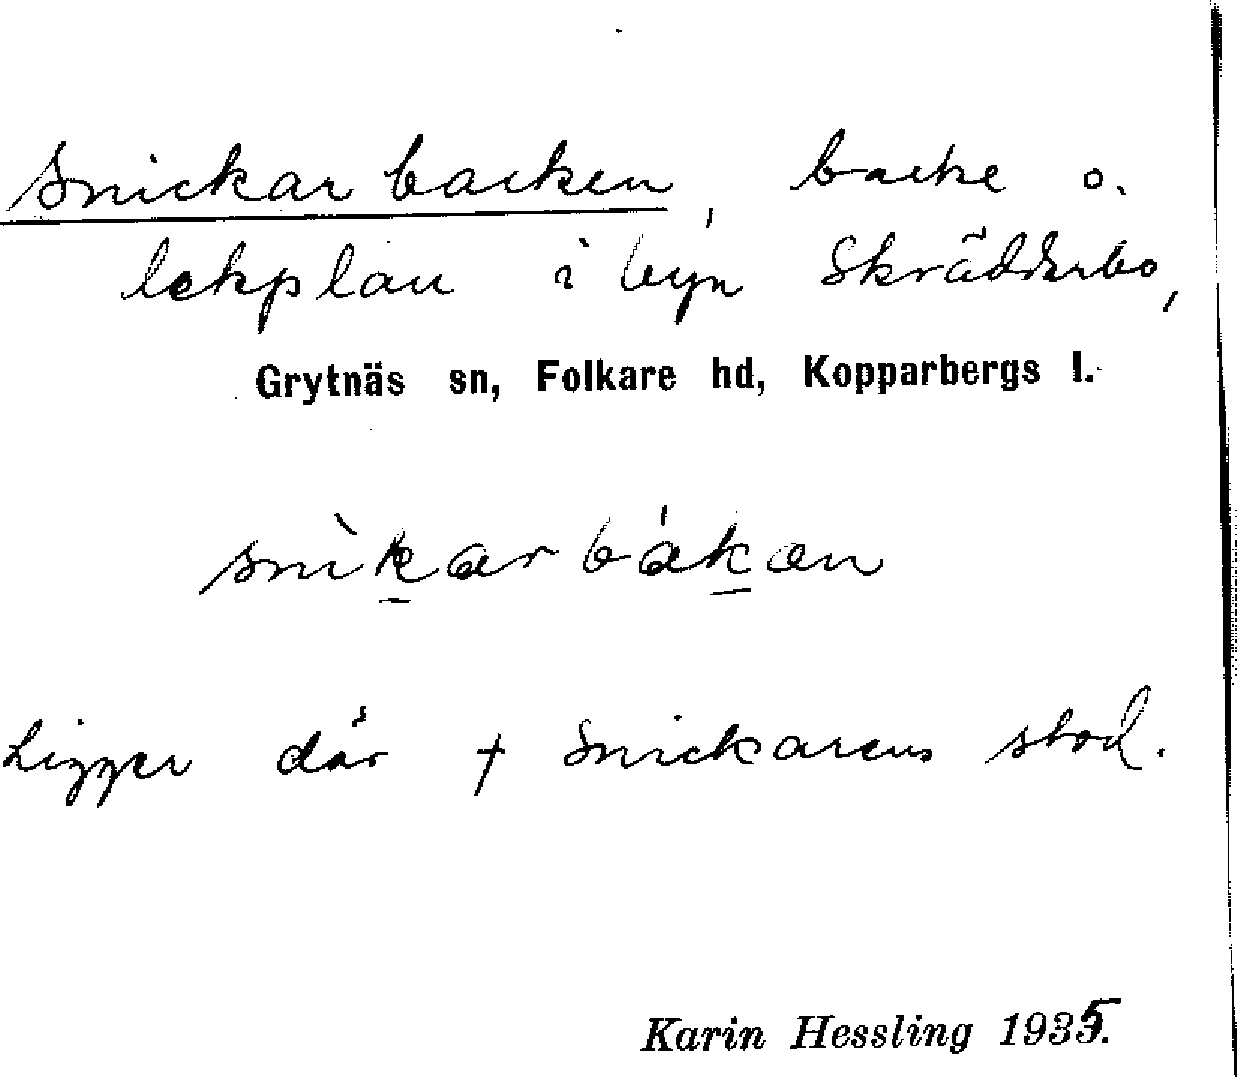 Snickarbacken, backe o.
lekplan i byn Skrädderbo,
Grytnäs sn, Folkare hd, Kopparbergs l.
snìkarbákan
Ligger där † Snickarens stod.
Karin Hessling 1935.